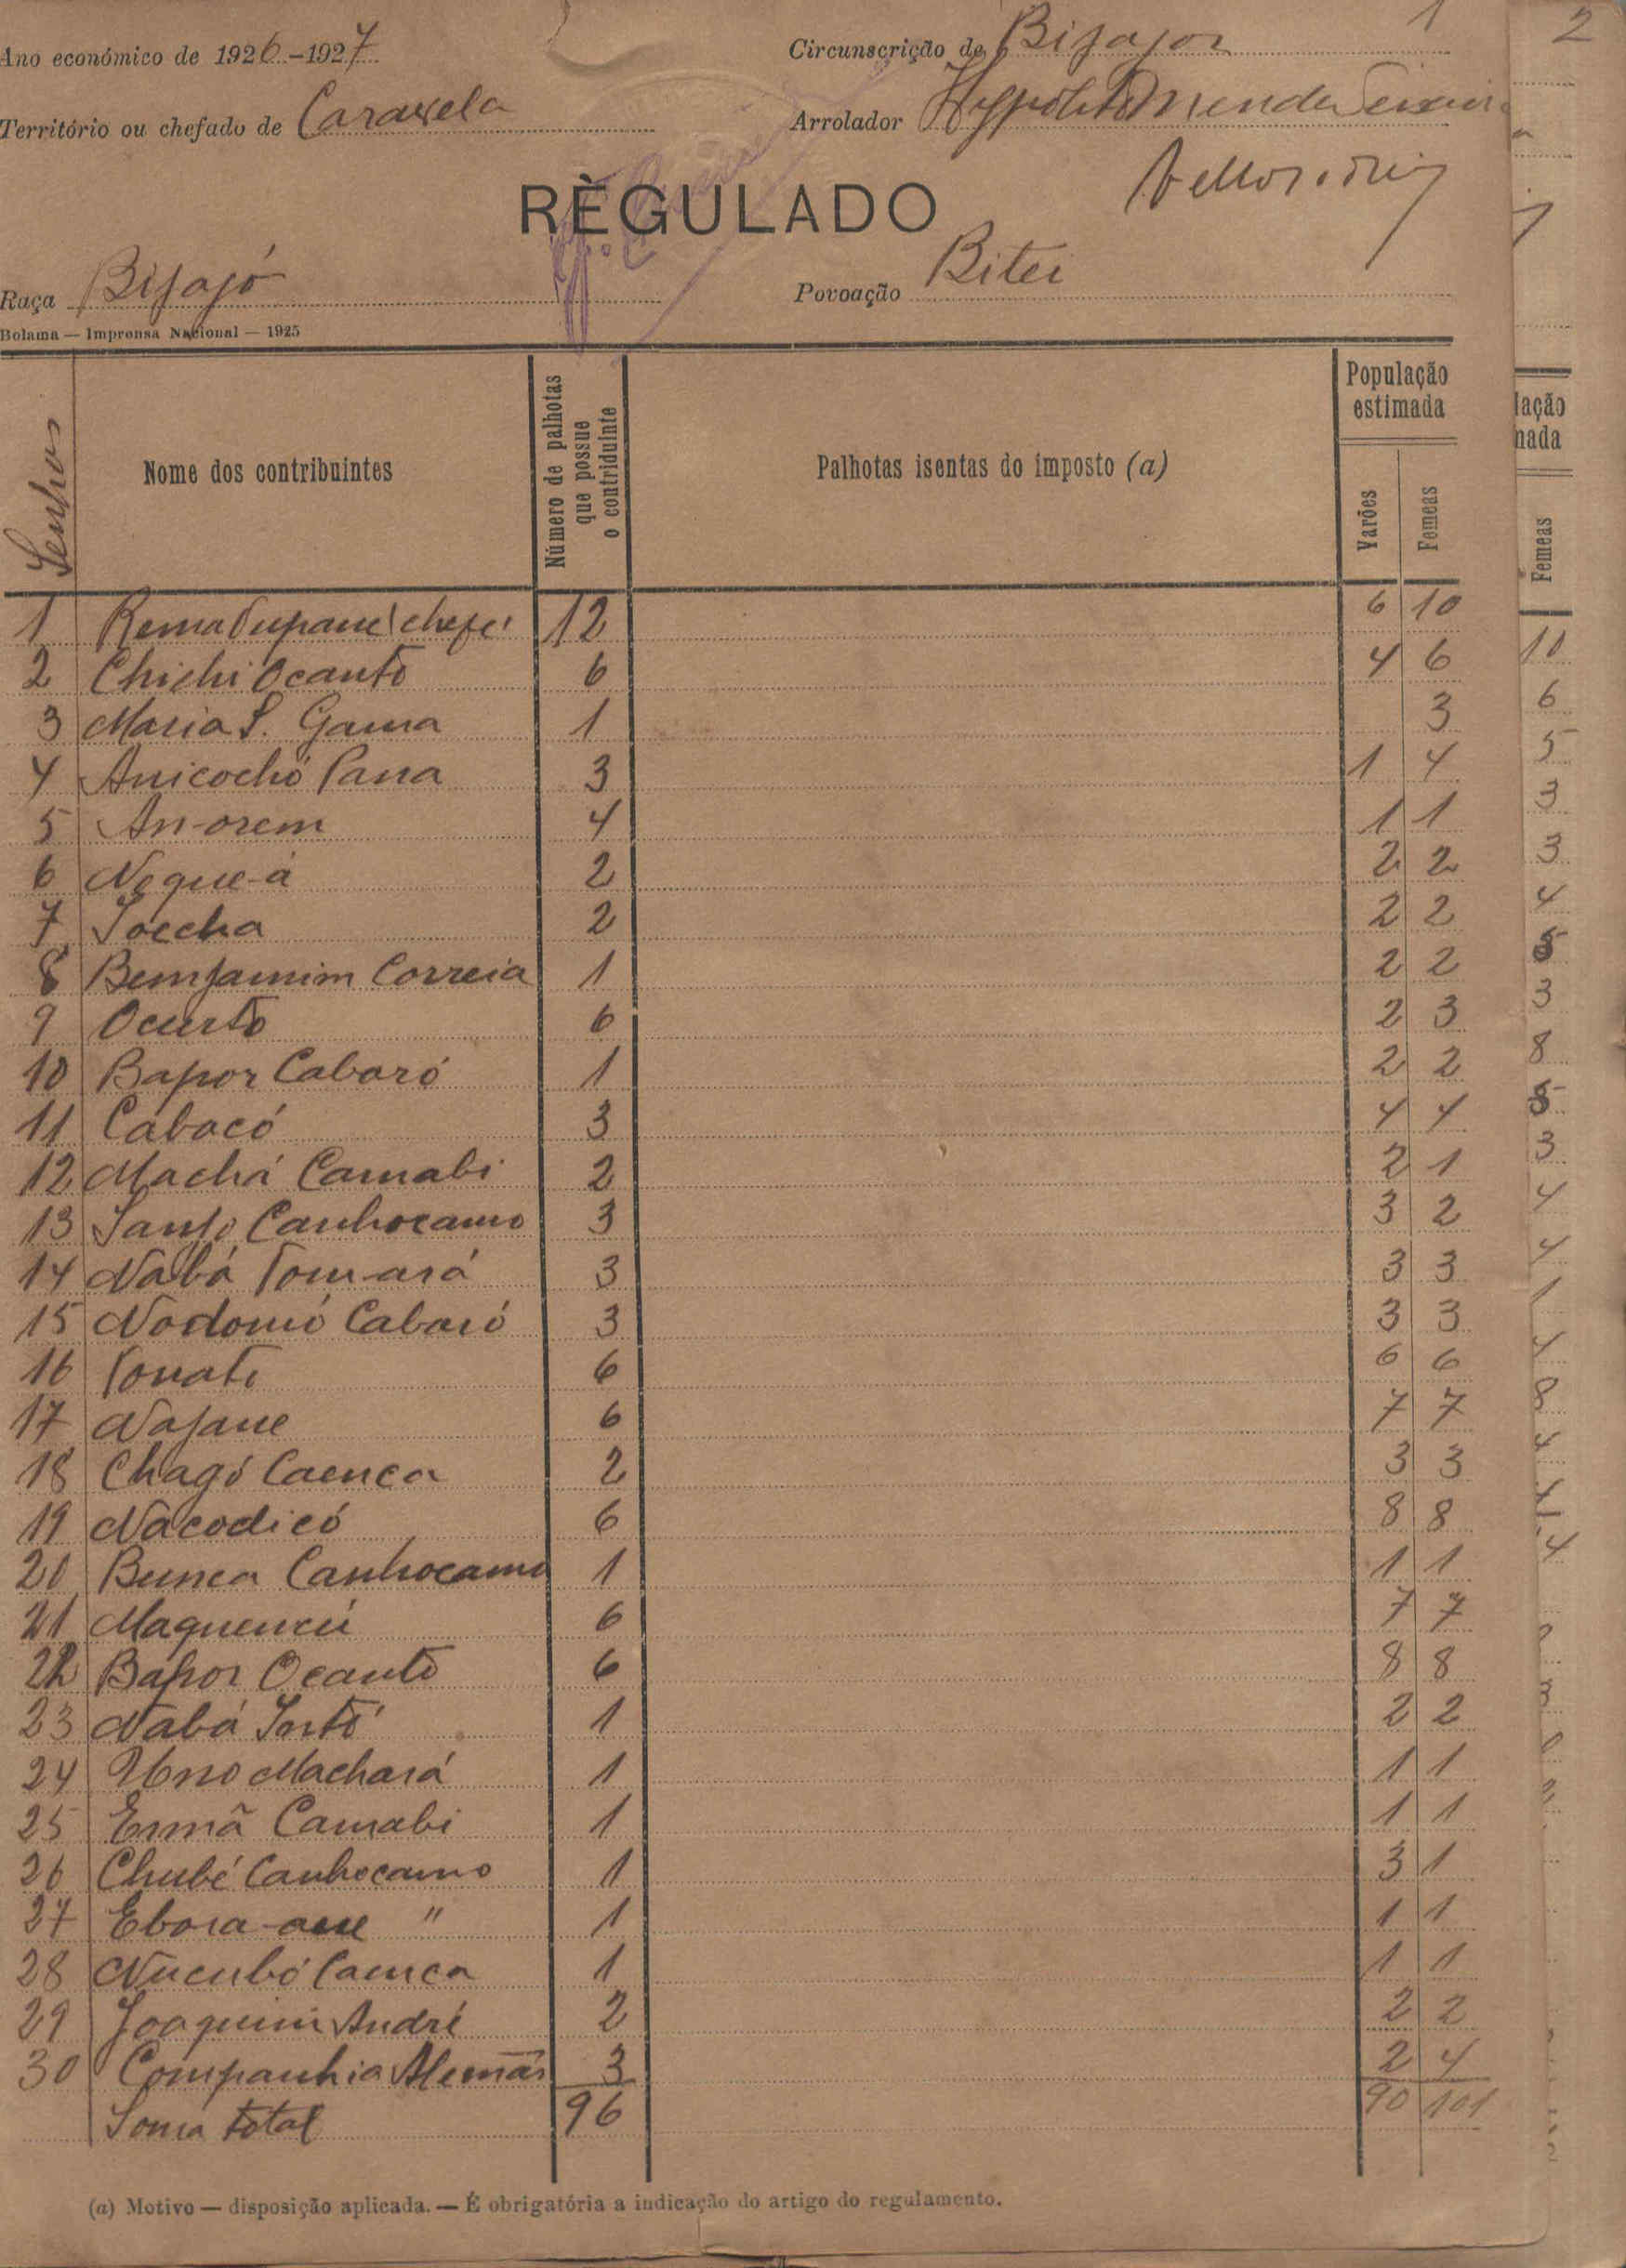 1 2
Ano económico de 1926-1927 Circunscrição de Bijajoz
Território ou chefado de Caravela Arrolador Hyppolito Mendes Teixeira
RÈGULADO
Raça Bijajó Povoação Bitei
Bolama — Imprensa Nacional — 1925
Senhos Nome dos contribuintes Número de palhotas que possue o contriduinte Palhotas isentas do imposto (a) População estimada Varões Femeas
lação
nada
Femeas
1 chefe 12 6 10 10
2 Chichi Ocantó 6 4 6 6
3 Maria S. Gama 1 3 5
4 Anicochó Pana 3 1 4 3
5 An-orem 4 1 1 3
6 Neque-á 2 2 2 4
7 Soccha 2 2 2 5
8 Bemjamim Correia 1 2 2 3
9 Ocurtó 6 2 3 8
10 Bapor Cabaró 1 2 2 5
11 Cabacó 3 4 4 3
12 Machá Camabi 2 2 1 4
13 Canhocamo 3 3 2 4
14 Nabá 3 3 3 1
15 Nodomó Cabaró 3 3 3 4
16 6 6 6 8
17 Najane 6 7 7 4
18 Chagó Caenca 2 3 3
19 Nacodicó 6 8 8 4
20 Bunca Canhocamo 1 1 1
21 Maquencú 6 7 7
22 Bapor Ocantó 6 8 8
23 Nabá 1 2 2
24 Machará 1 1 1
25 Ermã Camabi 1 1 1
26 Chubé Canhocamo 1 3 1
27 Ebora-ane " 1 1 1
28 Nucubó Caenca 1 1 1
29 Joaquim André 2 2 2
30 Companhia Alemãs 3 2 4
Soma total 96 90 101
(a) Motivo — disposição aplicada. — É obrigatória a indicação do artigo do regulamento.